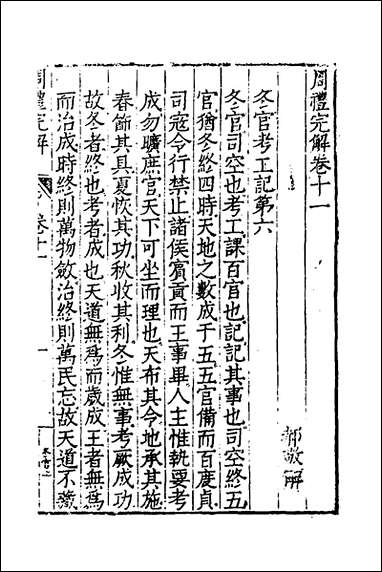 周禮完解卷十一
郝敬解
冬官考工記第六
冬官司空也考工課百官也記記其事也司空終五
官猶冬終四時天地之數成于五五官備而百度貞
司寇令行禁止諸侯賓貢而王事畢人主惟執要考
成勿曠庶官天下可坐而理也天布其令地承其施
春飭其具夏恢其功秋收其利冬惟無事考厥成功
故冬者終也考者成也天道無為而歲成王者無為
而治成時終則萬物斂治終則萬民忘故天道不蔵
周禮完解
卷十一
一